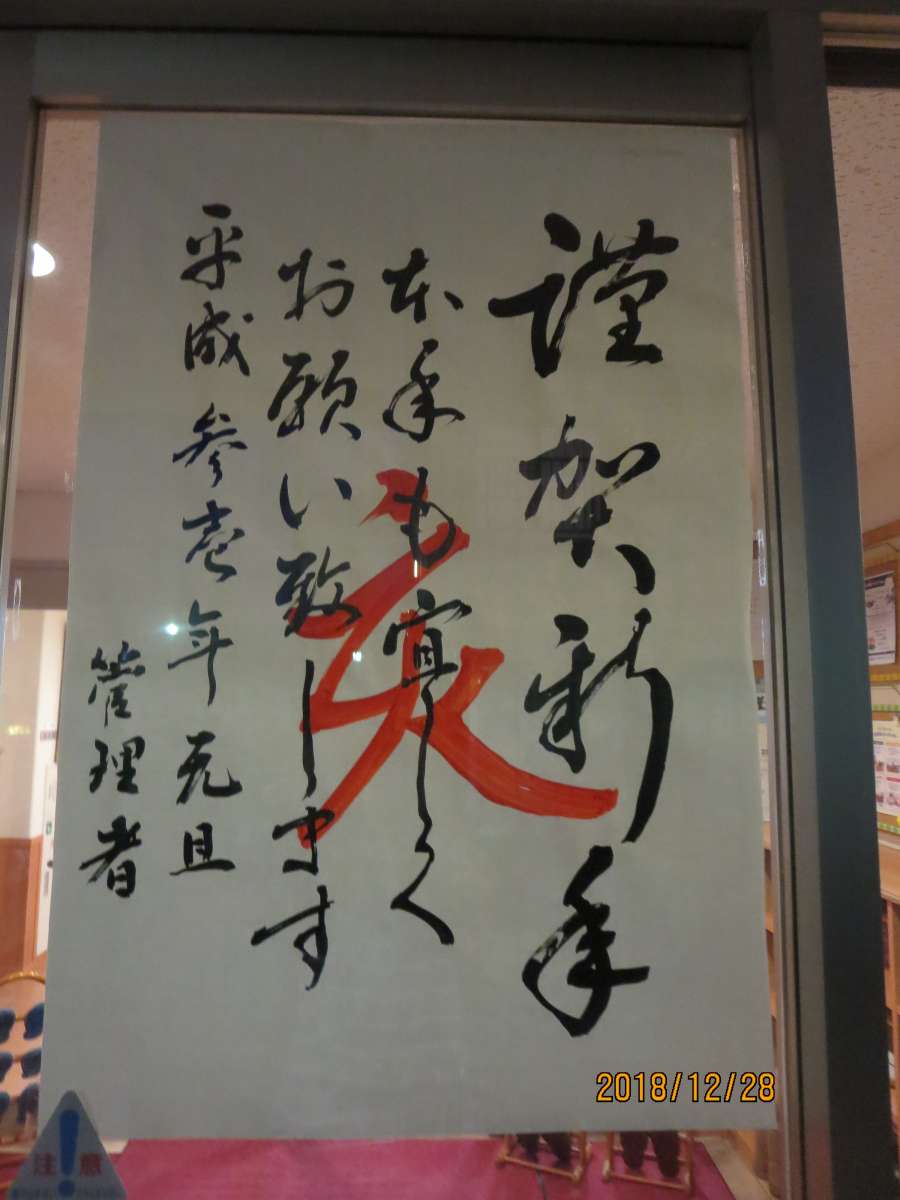 謹賀新年
本年も宜しく
お願い致します
平成参壱年元旦
管理者
亥
2018/12/28
注意